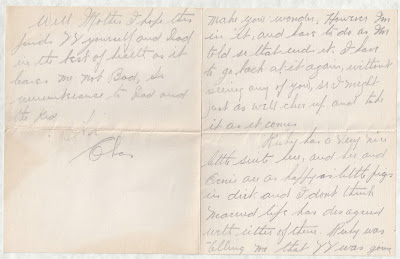 Well Mother I hope this
finds yourself and Dad
in the best of health as it
leaves me not Bad, so
remembrance to Dad and
the Kid
Chas
make you wonder, However I'm
in it, and have to do as I'm
told so that ends it. I have
to go back at it again, without
seeing any of you, so I might
just as well cheer up, and take
it as it comes
Ruby has a very nice
little suite here, and she and
Ernie are as happy as little pigs
in dirt and I don't think
Married life has disagreed
with either of them. Ruby was
telling me that was going